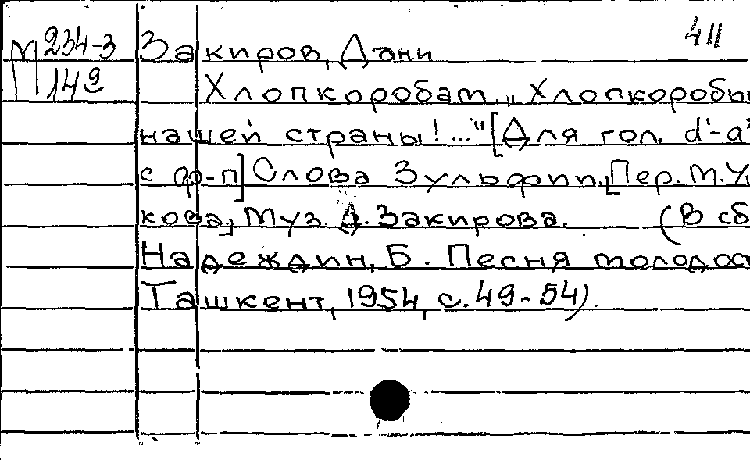 411
М 234-3 Закиров, Дани
142 Хлопкоробам. „Хлопкоробы
нашей страны!..." [Для гол. d'-a²
с ф-п] Слова Зульфии. [Пер. М. У
кова], Муз Д. Закирова. (В сб
Надеждин, Б. Песня молодос
Ташкент, 1954, с. 49-54).